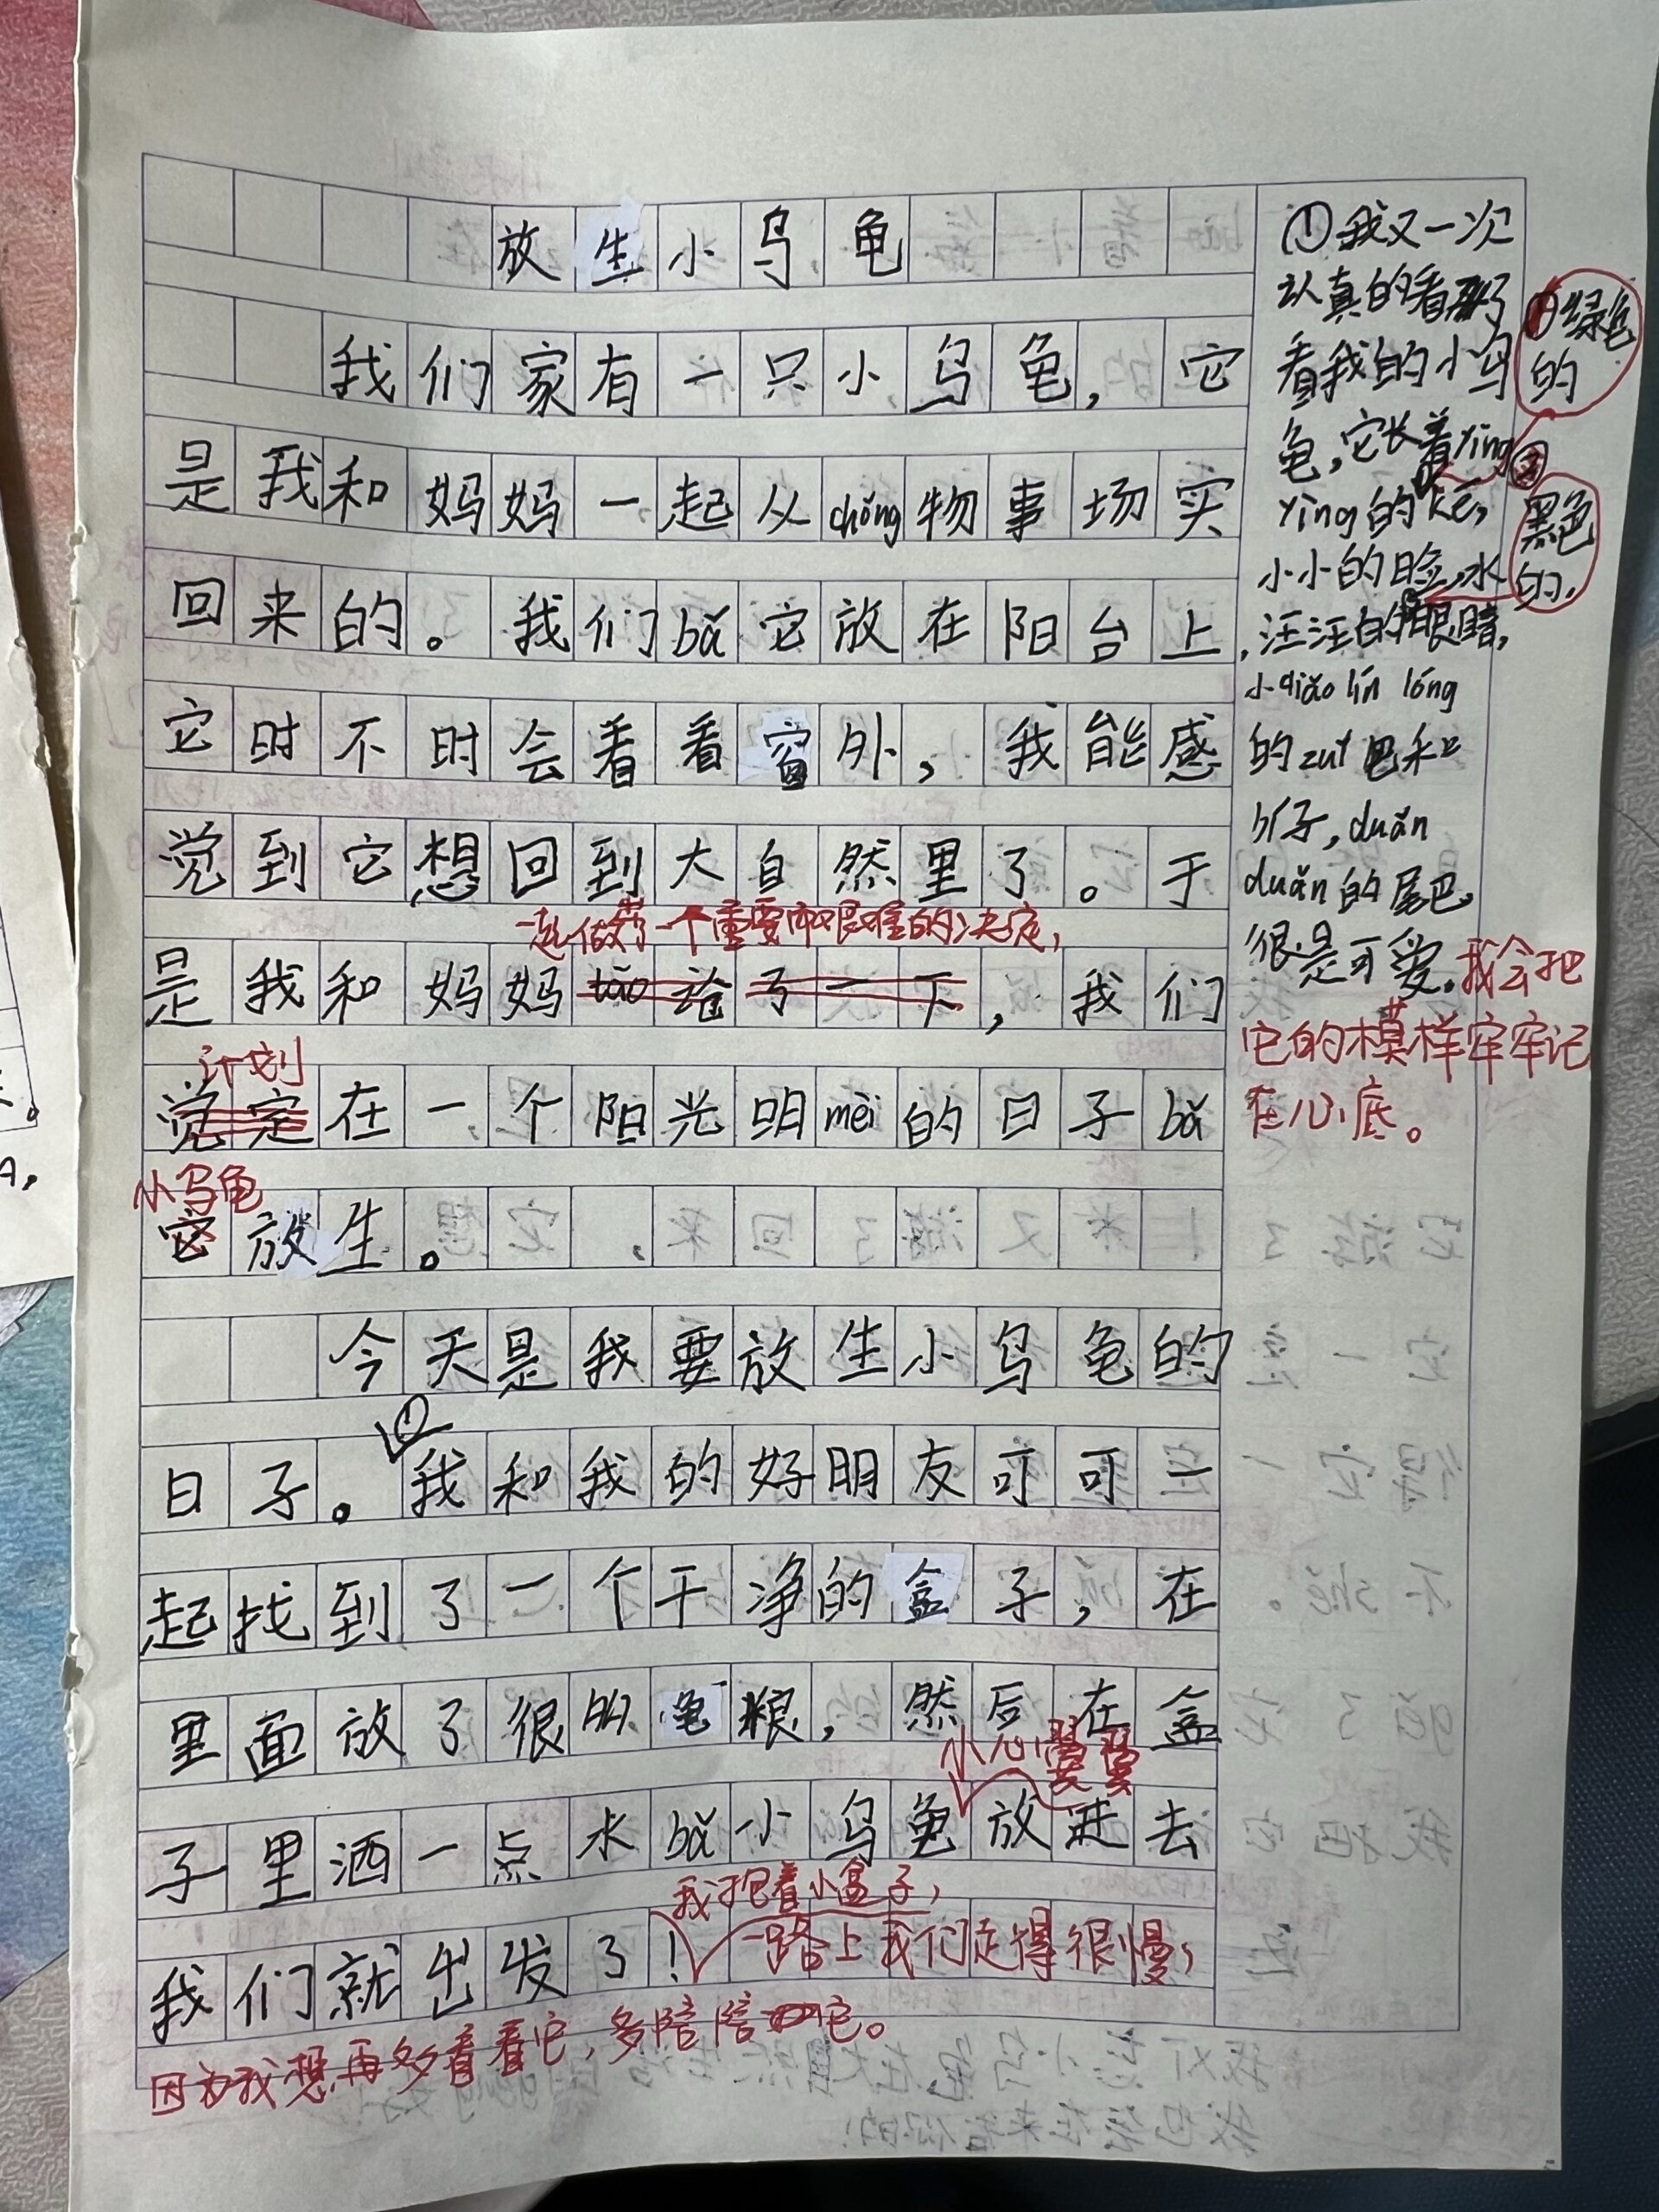 放生小乌龟
我们家有一只小乌龟，它
是我和妈妈一起从chǒng物事场买
回来的。我们bǎ它放在阳台上，
它时不时会看看窗外，我能感
觉到它想回到大自然里了。于
一起做了一个重要而艰难的决定，
是我和妈妈tǎo论了一下，我们
计划
觉定在一个阳光明mèi的日子bǎ
小乌龟
它放生。
今天是我要放生小乌龟的
①
日子。我和我的好朋友可可一
起找到了一个干净的盒子，在
里面放了很多龟粮，然后在盒
小心翼翼
子里洒一点水bǎ小乌龟放进去
我抱着小盒子，
我们就出发了！一路上我们走得很慢，
因为我想再多看看它，多陪陪它。
①我又一次
认真的看了
看我的小乌
龟，它长着yìng
yìng的壳，
小小的脸，水
汪汪的眼睛，
小qiǎo líng lóng
的zuǐ巴和
爪子，duǎn
duǎn的尾巴，
很是可爱。我会把
它的模样牢牢记
在心底。
①绿色
的
②
黑色
的，